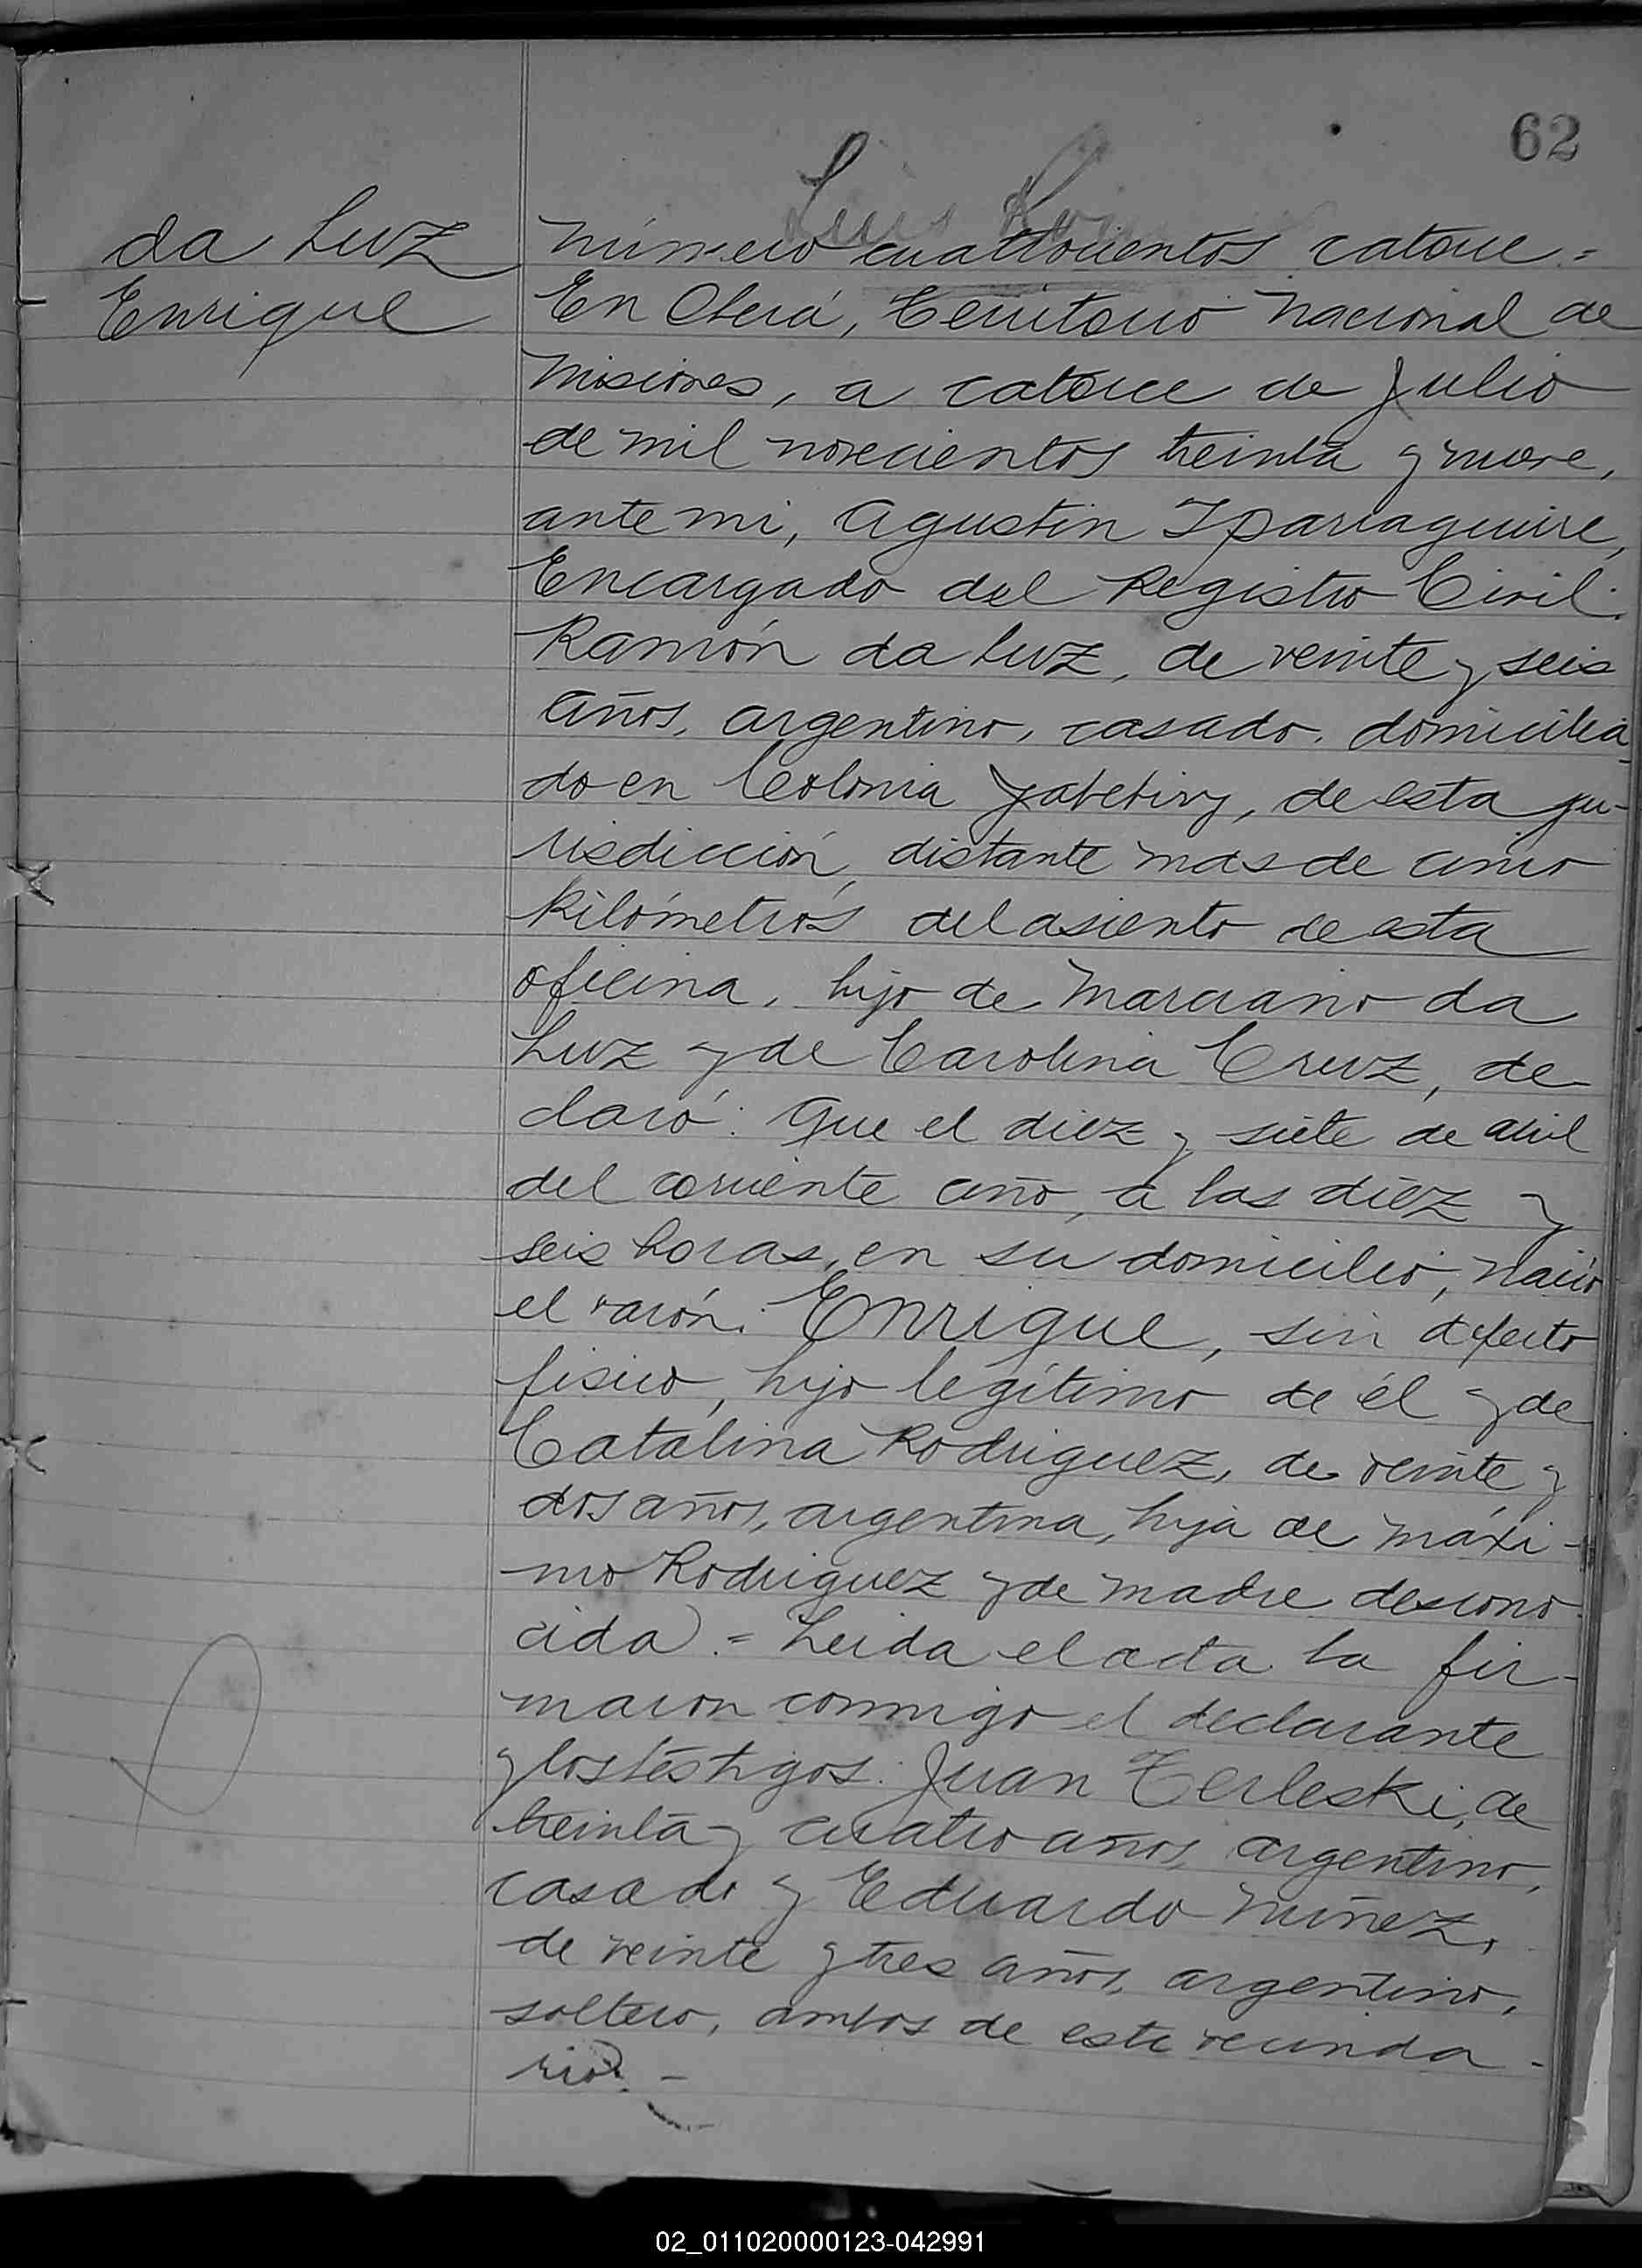 62
da Luz
Enrique
Número cuatrocientos catorce.=
En Oberá, Territorio Nacional de
Misiones, a catorce de Julio
de mil novecientos treinta y nueve,
ante mi, Agustin Iparraguirre,
Encargado del Registro Civil.
Ramón da Luz, de veinte y seis
años, argentino, casado, domicilia-
do en Colonia Yabebiry, de esta ju-
risdicción, distante mas de cinco
Kilómetros del asiento de esta
oficina, hijo de Marciano da
Luz y de Carolina Cruz, de
claró: Que el diez y siete de abril
del corriente año, a las diez y
seis horas, en su domicilio, nació
el varón: Enrique, sin defecto
fisico, hijo legítimo de él y de
Catalina Rodriguez, de veinte y
dos años, argentina, hija de Máxi-
mo Rodriguez y de madre descono
cida.= Leida el acta la fir-
maron conmigo el declarante
y los testigos: Juan Terleski, de
treinta y cuatro años, argentino,
casado y Eduardo Núñez,
de veinte y tres años, argentino,
soltero, ambos de este vecinda-
rio.-
02_011020000123-042991